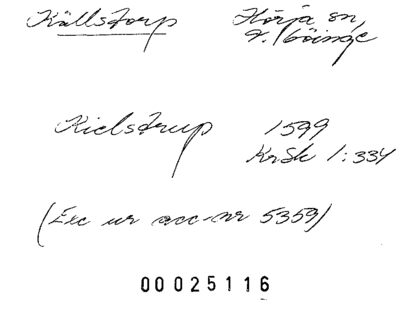 Källstorp Hörja sn,
V. Göinge
Kielstrup 1599
KrSk 1:334
(Exc ur acc-nr 5359)
00025116